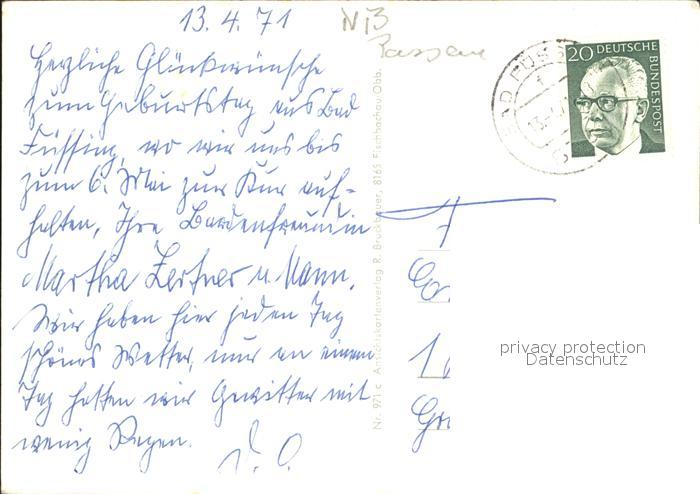 13. 4. 71
NB
Passau
Herzliche Glückwünsche
zum Geburtstag aus Bad
Füssing, wo wir uns bis
zum 6. Mai zur Kur auf-
halten, Ihre Bardenfreundin
Martha Zertner u. Mann.
Wir haben hier jeden Tag
schönes Wetter, nur an einem
Tag hatten wir Gewitter mit
wenig Regen.
Nr. 971 c Ansichtskartenverlag R. Bruckbauer, 8165 Fischbachau Obb.
20 DEUTSCHE
BUNDESPOST
BAD FÜSS
1
13.-4.
privacy protection
Datenschutz
1